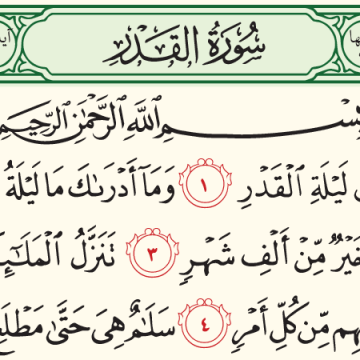 سُورَةُ ٱلْقَدْرِ
بِسْمِ ٱللَّهِ ٱلرَّحْمَٰنِ ٱلرَّحِيمِ
لَيْلَةِ ٱلْقَدْرِ ١ وَمَآ أَدْرَىٰكَ مَا لَيْلَةُ
خَيْرٌ مِّنْ أَلْفِ شَهْرٍ ٣ تَنَزَّلُ
مِّن كُلِّ أَمْرٍ ٤ سَلَٰمٌ هِىَ حَتَّىٰ